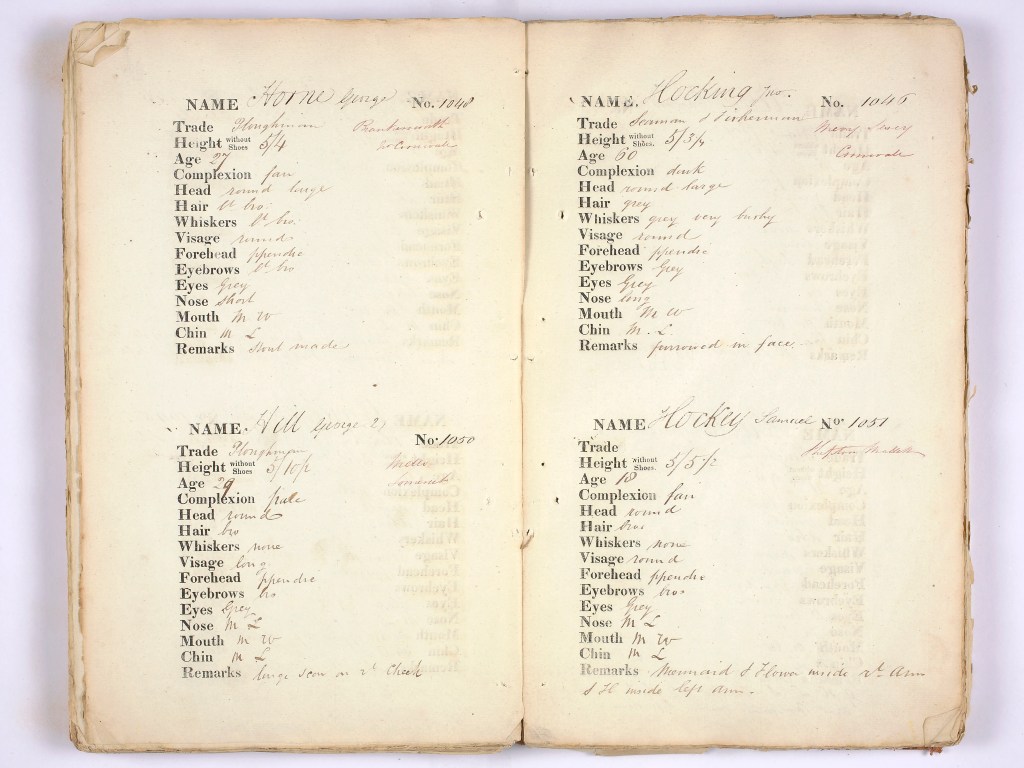 NAME Horne George No. 1048
Trade Ploughman
Height without Shoes 5/4 Nr Cornwall
Age 27
Complexion fair
Head round large
Hair lt bro:
Whiskers lt bro:
Visage round
Forehead ppendic
Eyebrows lt bro
Eyes Grey
Nose short
Mouth M W
Chin M L
Remarks Stout made
NAME. Hill George 2)
No. 1050
Trade Ploughman
Height without Shoes 5/10½ Wells
Age 29 Somerset
Complexion pale
Head round
Hair bro
Whiskers none
Visage long
Forehead ppendic
Eyebrows bro
Eyes Grey
Nose M L
Mouth M W
Chin M L
Remarks large scar on rt Cheek
NAME. Hocking Jno. No. 1046
Trade Seaman & Fisherman
Height without Shoes. 5/3½ Cornwall
Age 60
Complexion dark
Head round large
Hair grey
Whiskers grey very bushy
Visage round
Forehead ppendic
Eyebrows Grey
Eyes Grey
Nose long
Mouth M W
Chin M. L
Remarks furrowed in face.
NAME Hockey Samuel No. 1051
Trade Shepton Mallet
Height without Shoes. 5/5½
Age 18
Complexion fair
Head round
Hair bro
Whiskers none
Visage round
Forehead ppendic
Eyebrows bro
Eyes Grey
Nose M L
Mouth M W
Chin M L
Remarks Mermaid & Flower inside rt Arm
S H inside left arm.